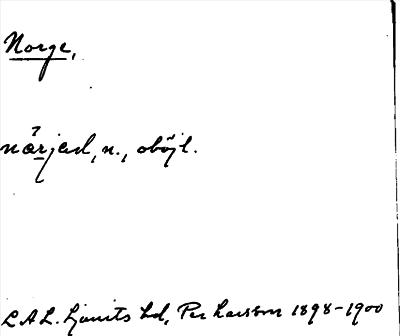 Norge,
nærjed, n., oböjl.
L.A.L. Ljunits hd, Per Larsson 1898-1900